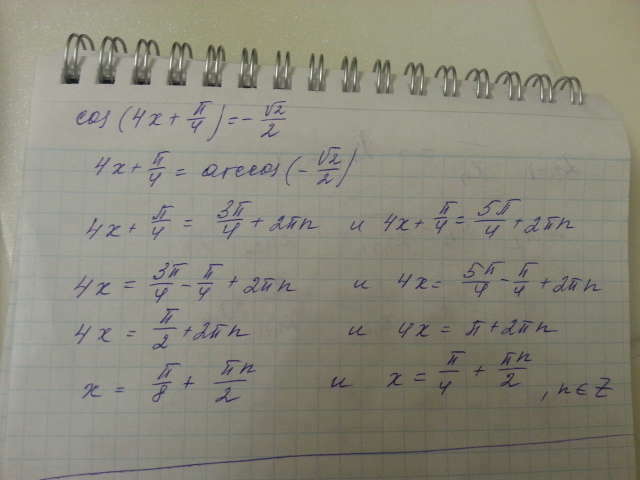 cos(4x + π/4) = - √2/2
4x + π/4 = arccos(- √2/2)
4x + π/4 = 3π/4 + 2πn и 4x + π/4 = 5π/4 + 2πn
4x = 3π/4 - π/4 + 2πn и 4x = 5π/4 - π/4 + 2πn
4x = π/2 + 2πn и 4x = π + 2πn
x = π/8 + πn/2 и x = π/4 + πn/2 , n ∈ Z